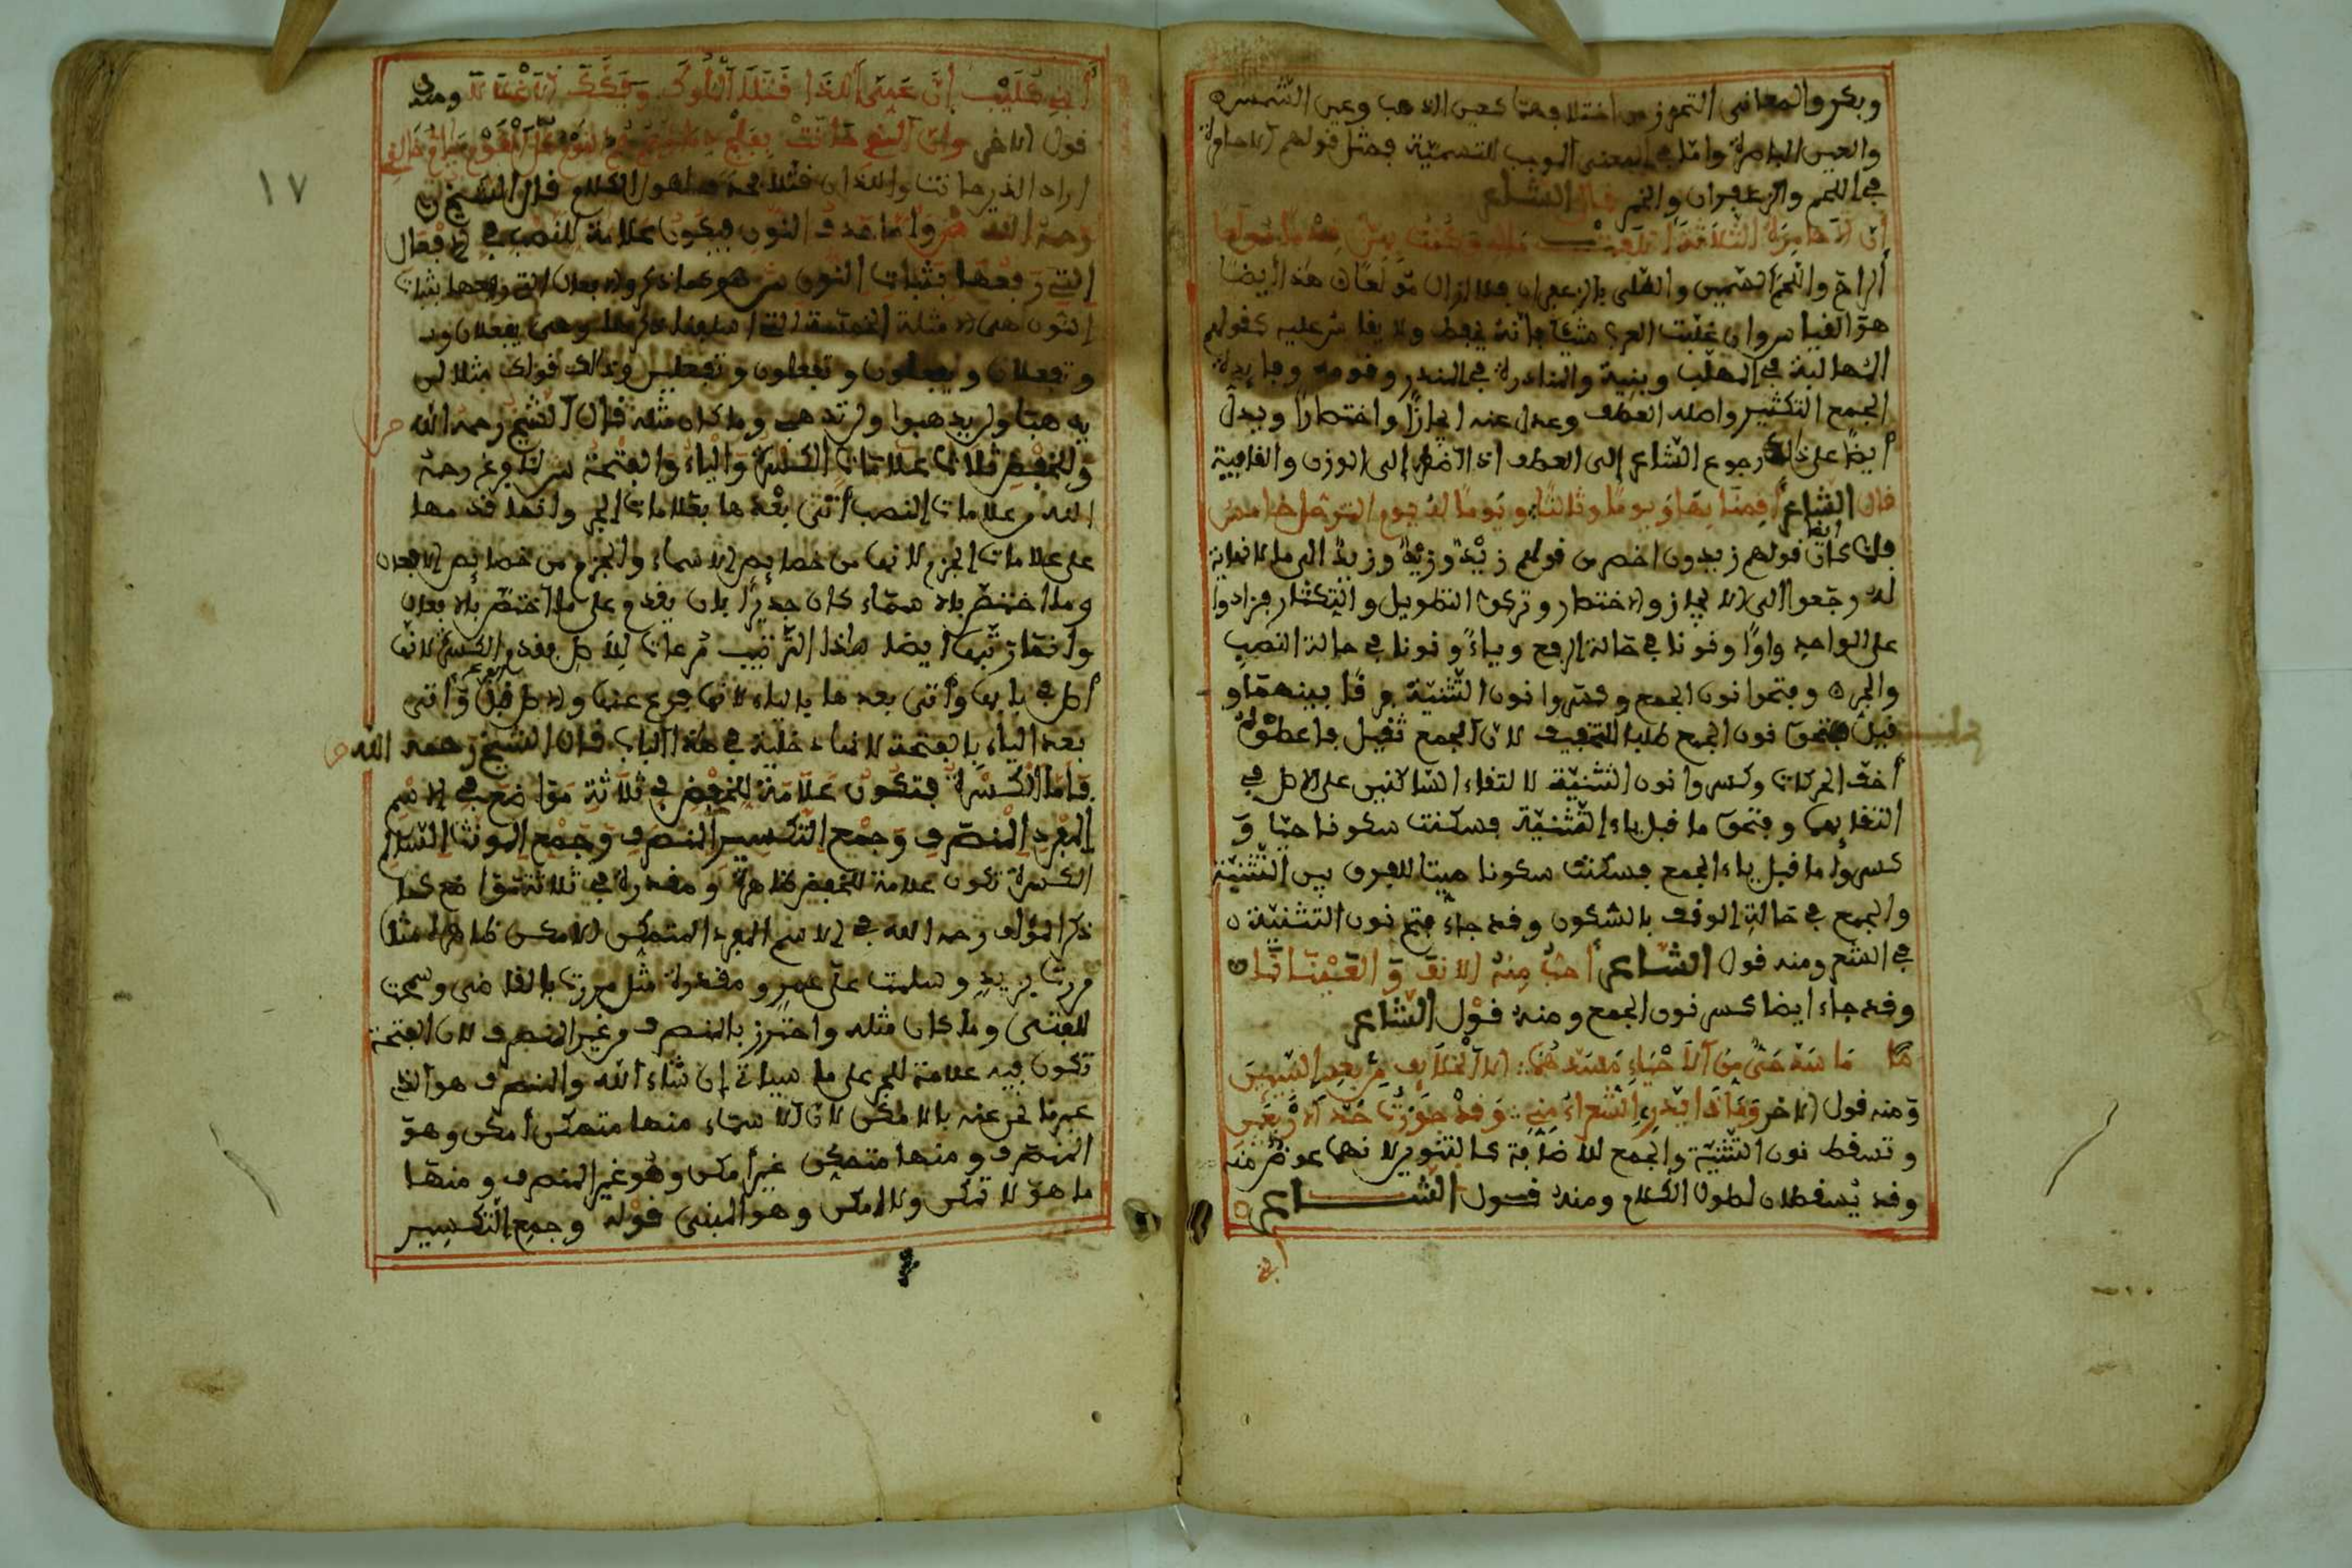 وبكر والمعاني التحرز من اختلافهما كعين الذهب وعين الشمس
والعين الباصرة وأما في المعنى الموجب للتسمية فمثل قولهم الاحامرة
في اللحم والزعفران والخمر قال الشاعر
إن الاحامرة الثلاثة أتلفت مالي وكنت بهن قدما مولعا
الراح واللحم السمين وأطلي بالزعفران فلا ازال مولعا هذا أيضا
هو القياس وان غلبت العرب شيئا فإنه يحفظ ولا يقاس عليه كقولهم
المهالبة في المهلب وبنيه والمناذرة في المنذر وقومه وفايدة
الجمع التكثير وأصله العطف وعدل عنه ايجازا واختصارا ويدل
أيضا على ذالك رجوع الشاعر إلى العطف اذا اضطر إلى الوزن والقافية
قال الشاعر أقمنا بها يوما ويوما وثالثا ويوما له يوم الترحل خامس
فلما كان أيضا قولهم زيدون اخصر من قولهم زيد وزيد وزيد الى ما لا نهاية
له رجعوا الى الايجاز والاختصار وتركوا التطويل والتكثار فزادوا
على الواحد واوا ونونا في حالة الرفع وياء ونونا في حالة النصب
والجر وفتحوا نون الجمع وكسروا نون التثنية فرقا بينهما و
قيل فتحو نون الجمع طلبا للتخفيف لان الجمع ثقيل فاعطوه
أخف الحركات وكسروا نون التثنية لالتقاء الساكنين على الاصل في
التقايهما وفتحو ما قبل ياء التثنية فسكنت سكونا حيا و
كسروا ما قبل ياء الجمع فسكنت سكونا ميتا للفرق بين التثنية
والجمع في حالة الوقف بالسكون وقد جاء فتح نون التثنية
في الشعر ومنه قول الشاعر أحب منه الانف والعينانا
وقد جاء ايضا كسر نون الجمع ومنه قول الشاعر
ما سد حي من الاحياء مسدهما الا الخلايف من بعد النبيين
ومنه قول الاخر وماذا يدري الشعراء مني وقد جاوزت حد الاربعين
وتسقط نون التثنية والجمع للاضافة كالتنوين لانهما عوض منه
وقد يسقطان لطول الكلام ومنه قول الشاعر
ابني
١٧
أبني كليب إن عمي اللذا قتلا الملوك وفككا الاغلالا ومنه
قول الاخر وإن الذي حانت بفلج دماؤهم هم القوم كل القوم يا أم خالد
اراد الذين حانت واللذان قتلا فحذفهما لطول الكلام قال الشيخ
رحمه الله وأما حذف النون فيكون علامة للنصب في الافعال
التي رفعها بثبات النون ش هو كما ذكر والافعال التي رفعها بثبات
النون هي الامثلة الخمسة التي وهي يفعلان و
وتفعلان ويفعلون وتفعلون وتفعلين وذالك قولك مثلا لن
يذهبا ولن يذهبوا ولن تذهبي وما كان مثله قال الشيخ رحمه الله
وللخفض ثلاث علامات الكسرة والياء والفتحة ش لما فرغ رحمه
الله من علامات النصب أتى بعدها بعلامات الجر وانما قدمها
على علامات الجزم لانها من خصايص الاسماء والجزم من خصايص الافعال
وما اختص بالاسماء كان جديرا بان يقدم على ما اختص بالافعال
وانما رتبها أيضا هاذا الترتيب مراعات للاصل فقدم الكسرة لانها
أصل في بابها وأتى بعدها بالياء لانها فرع عنها والاصل قبل الفرع وأتى
بعد الياء بالفتحة لانها دخلية في هذا الباب قال الشيخ رحمه الله
فأما الكسرة فتكون علامة للخفض في ثلاثة مواضع في الاسم
المفرد المنصرف وجمع التكسير المنصرف وجمع المونث السالم
الكسرة تكون علامة للخفض ظاهرة ومقدرة في ثلاثة مواضع كما
ذكر المؤلف رحمه الله في الاسم المفرد المتمكن الامكن ظاهرا مثل
مررت بزيد وسلمت على عمر ومقدرة مثل مررت بالقاضي وسمعت
للفتى وما كان مثله واحترز بالمنصرف من غير المنصرف لان الفتحة
تكون فيه علامة للجر على ما سياتي إن شاء الله والمنصرف هو الذي
عبرنا نحن عنه بالامكن لان الاسماء منها متمكن أمكن وهو
المنصرف ومنها متمكن غير أمكن وهو غير المنصرف ومنها
ما هو لا متمكن ولا امكن وهو المبني قوله وجمع التكسير